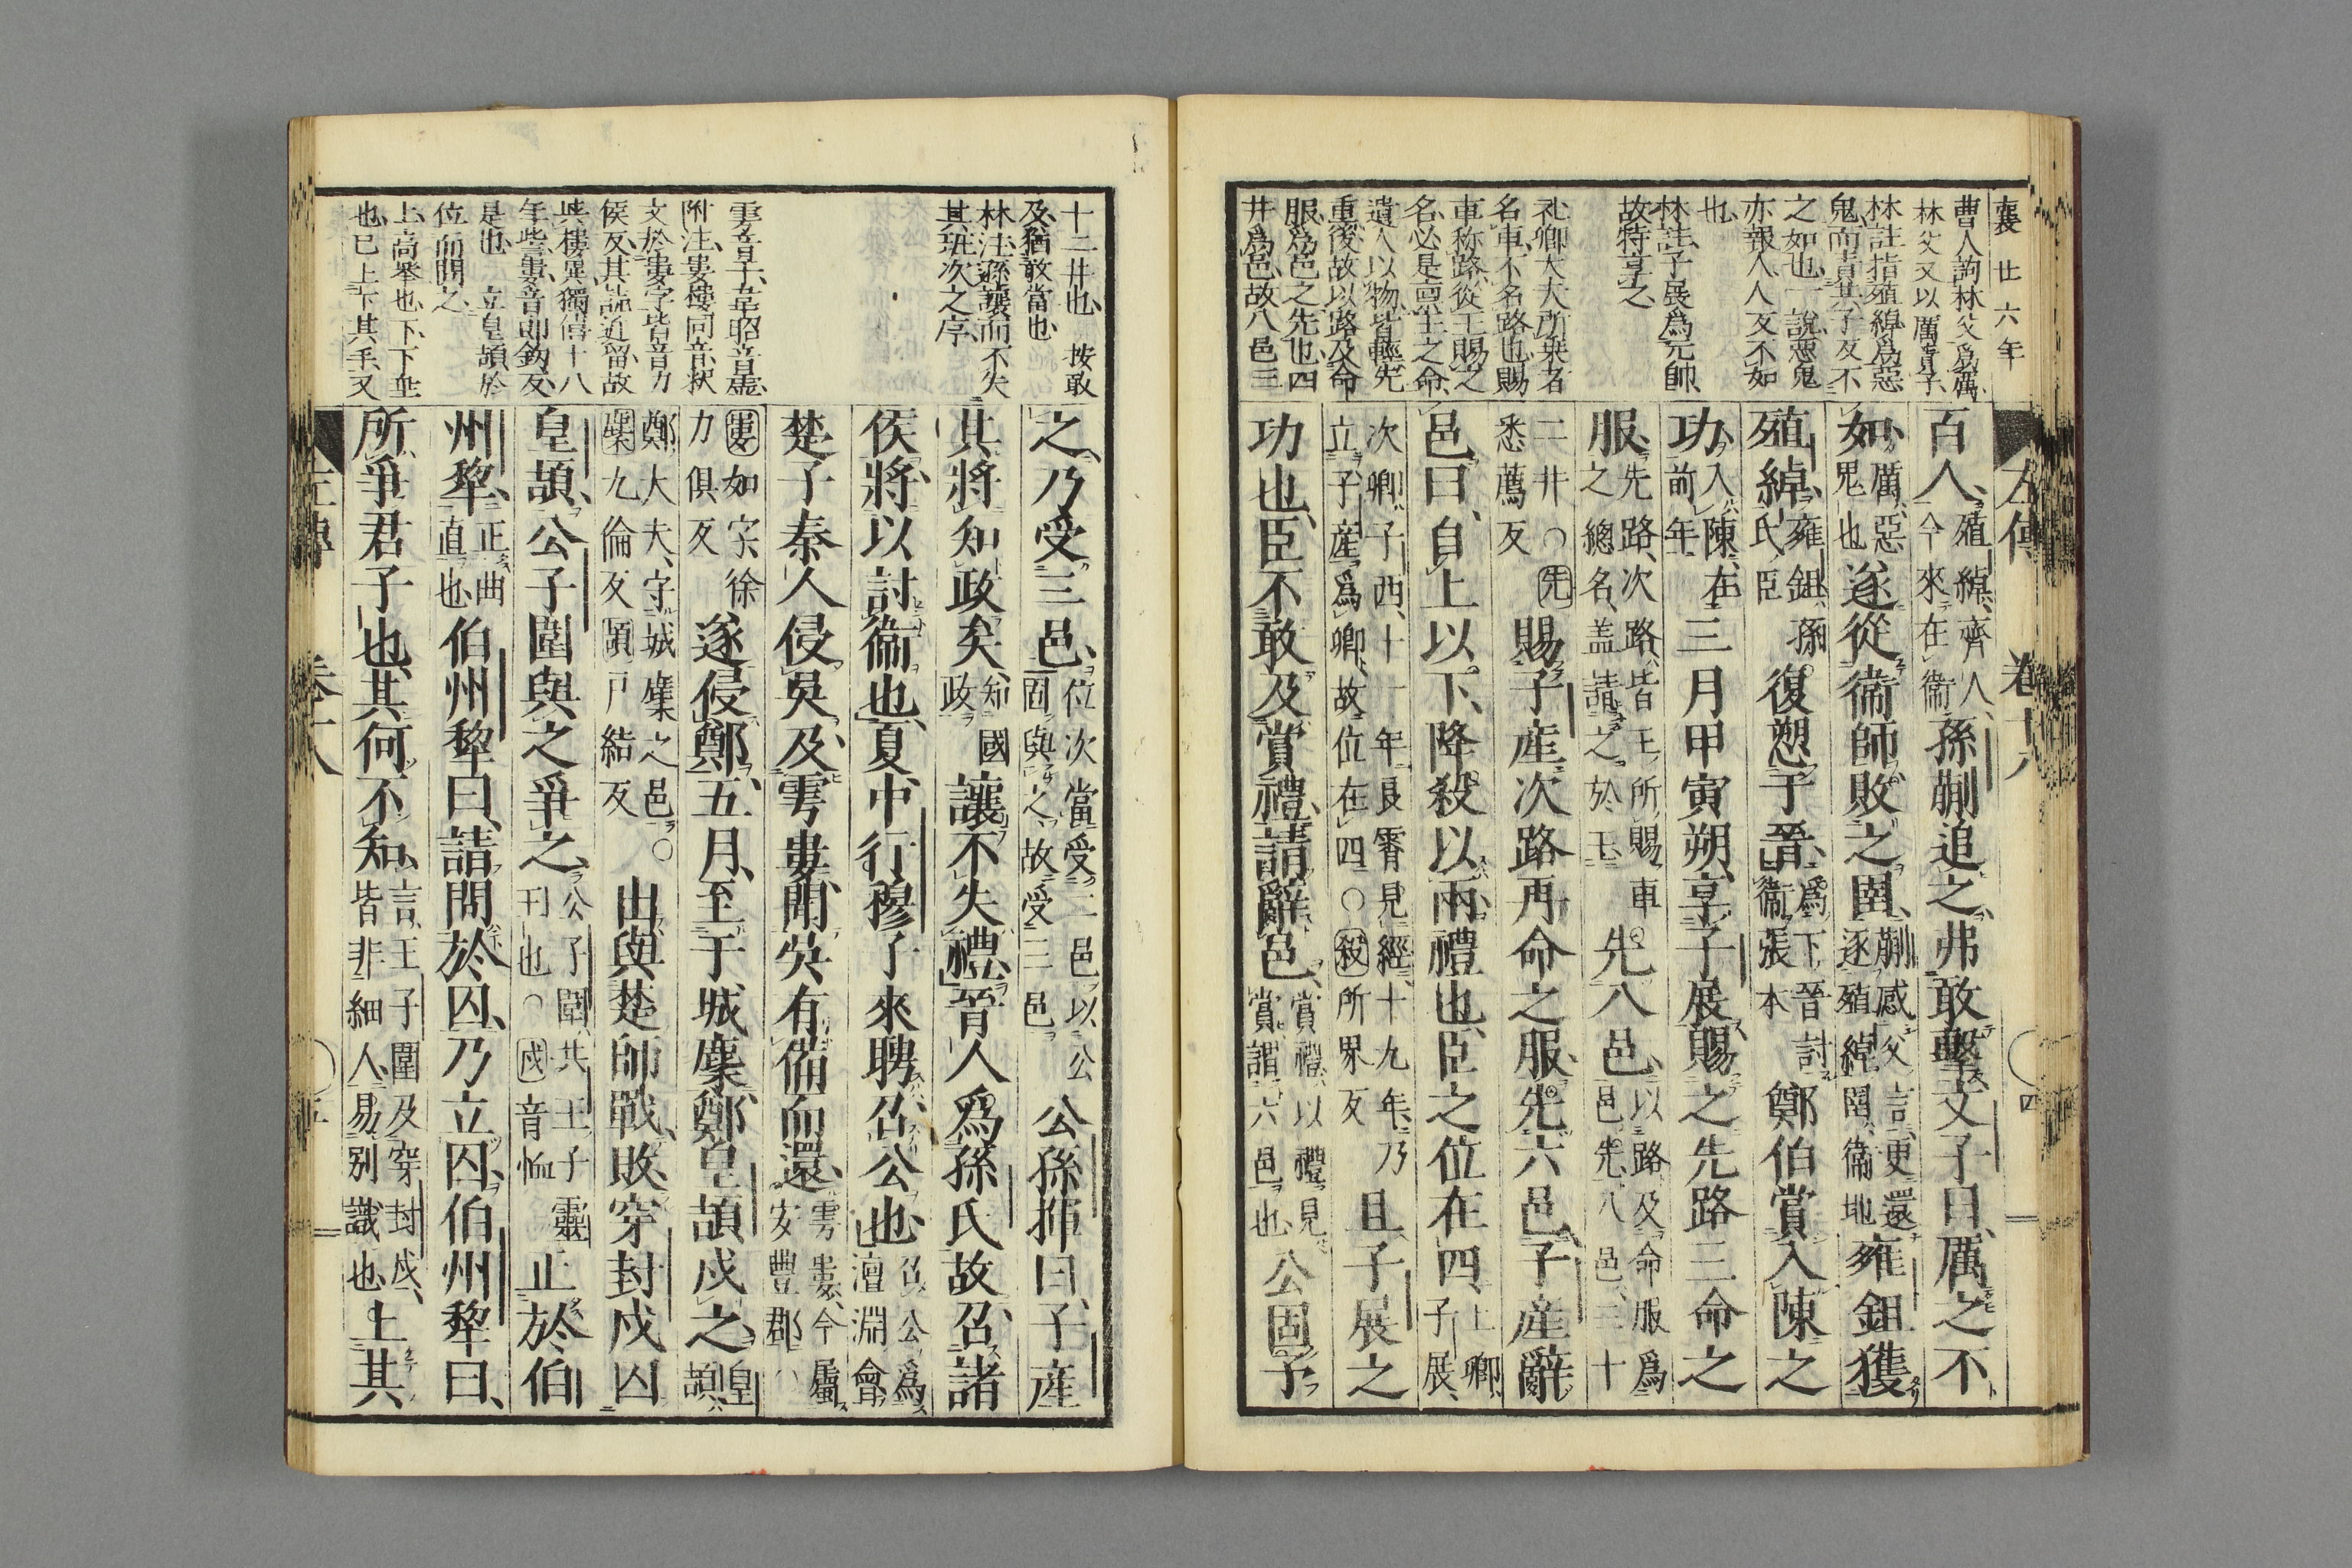 襄 廿六年
曹人詢林父爲厲
林父又以厲責子
林註指殖綽爲惡
鬼而責其子反不
之如也一說惡鬼
亦報人人反不如
也
林註子展爲元帥
故特享之
礼卿大夫所乗者
名車不名路也賜
車称路從王賜之
名必是稟王之命
遺人以物皆輕先
重後故以路及命
服爲邑之先也四
井爲邑故八邑三
左傳 卷十八 四
百人殖綽齊人今來在衞孫蒯追之弗敢擊文子曰厲之不
如厲惡鬼也遂從衞師敗之圉蒯感父言更還逐殖綽圉衞地雍鉏獲
殖綽雍鉏孫氏臣復愬于晉爲下晉討衞張本鄭伯賞入陳之
功入陳在前年三月甲寅朔享子展賜之先路三命之
服先路次路皆王所賜車之總名盖請之於王先八邑以路及命服爲邑先八邑三十
二井○先悉薦反賜子產次路再命之服先六邑子產辭
邑曰自上以下降殺以兩禮也臣之位在四上卿子展
次卿子西十一年良霄見經十九年乃立子產爲卿故位在四○殺所界反且子展之
功也臣不敢及賞禮請辭邑賞禮以禮見賞謂六邑也公固予
十二井也 按敢
及猶敢當也
林注孫讓而不失
其班次之序
雩音于韋昭音虛
附注婁樓同音釈
文於婁字皆音力
侯反其誌近留故
與樓異獨僖十八
年些婁音即鈎反
是也 立皇頡於
位而問之
上高舉也下下垂
也已上下其手又
之乃受三邑位次當受二邑以公固與之故受三邑公孫揮曰子產
其將知政矣知國政讓不失禮晉人爲孫氏故召諸
侯將以討衞也夏中行穆子來聘召公也召公爲澶淵會
楚子秦人侵吳及雩婁聞吳有備而還雩婁今屬安豐郡○
婁如字徐力俱反遂侵鄭五月至于城麇鄭皇頡戍之皇頡
鄭大夫守城麇之邑○麇九倫反頡戸結反出與楚師戰敗穿封戌囚
皇頡公子圍與之爭之公子圍共王子靈王也○戌音恤正於伯
州犂正曲直也伯州犂曰請問於囚乃立囚伯州犂曰
所爭君子也其何不知言王子圍及穿封戌皆非細人易別識也上其
左傳 卷十八